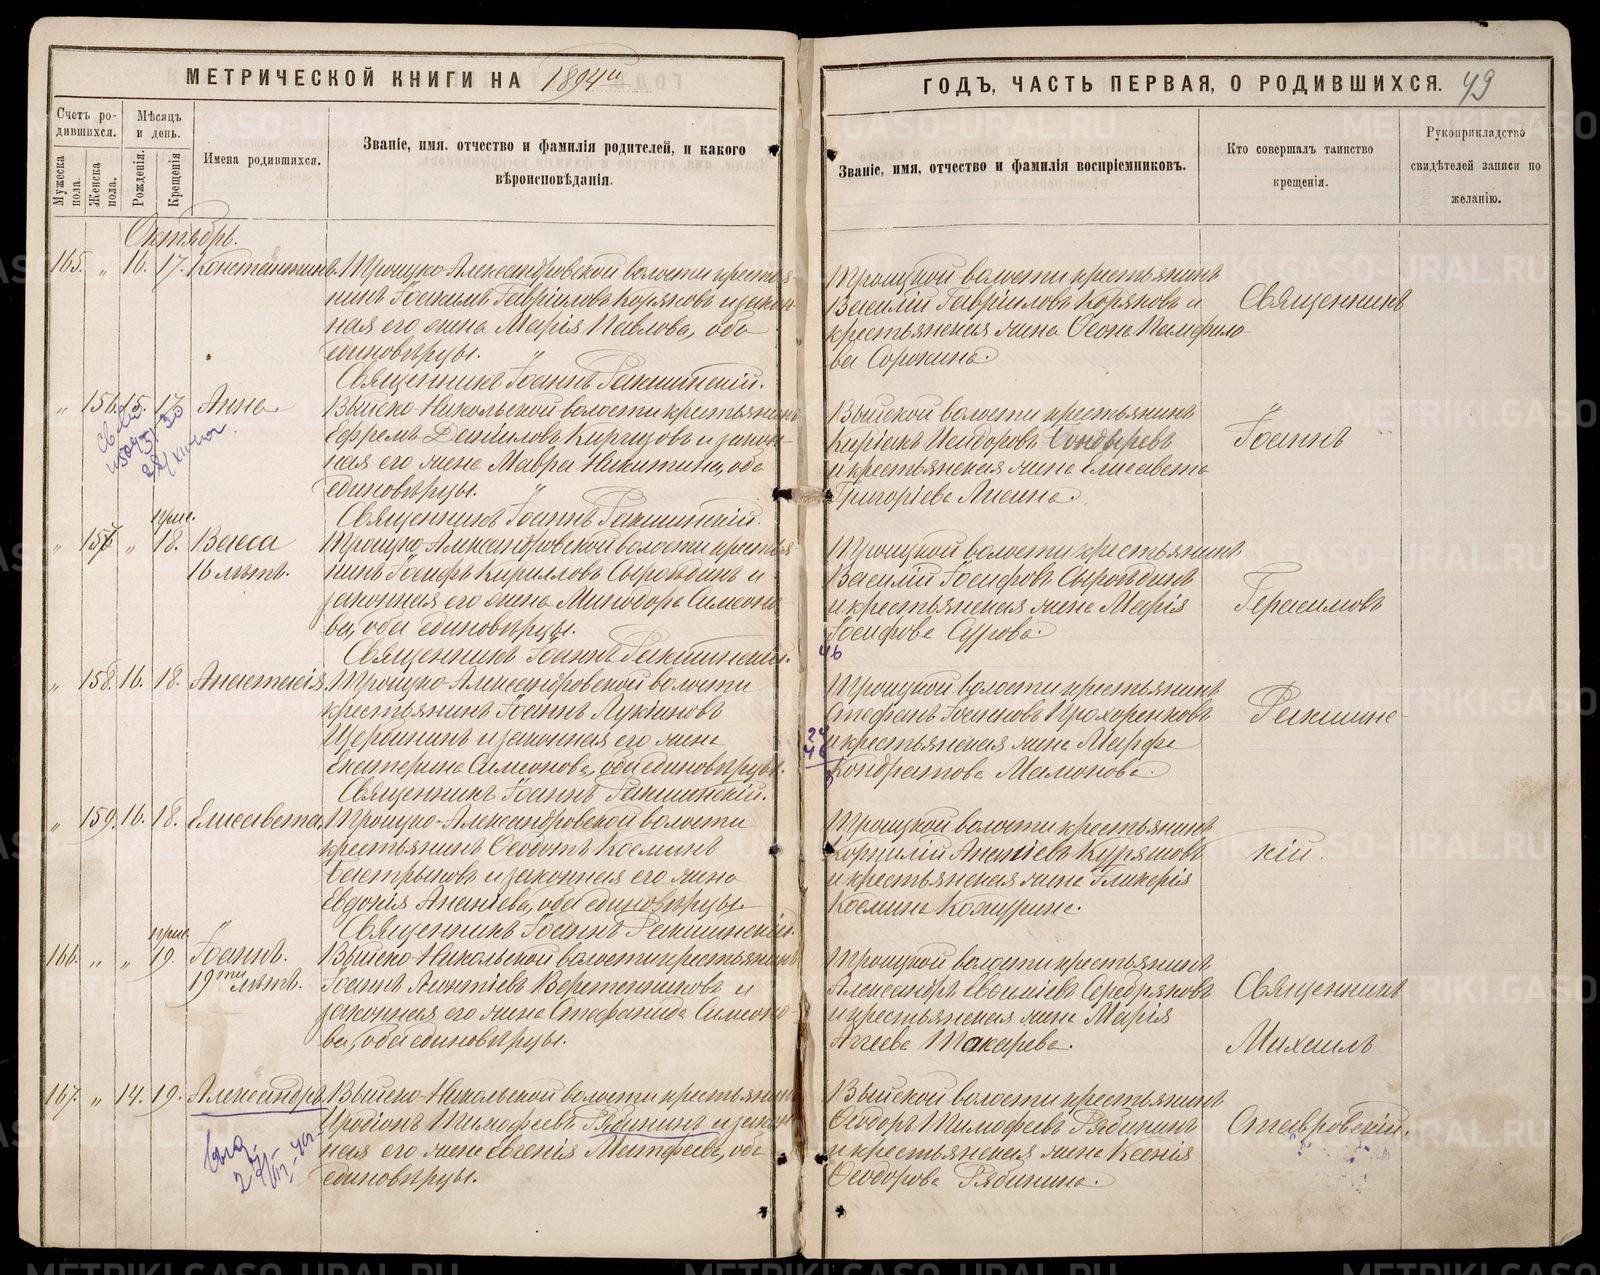 МЕТРИЧЕСКОЙ КНИГИ НА 1894й
ГОДЪ, ЧАСТЬ ПЕРВАЯ, О РОДИВШИХСЯ. 49
Счетъ родившихся.
Мужеска пола.
Женска пола.
Мѣсяцъ и день.
Рожденія.
Крещенія
Имена родившихся.
Званіе, имя, отчество и фамилія родителей, и какого
вѣроисповѣданія.
Званіе, имя, отчество и фамилія воспріемниковъ.
Кто совершалъ таинство
крещенія.
Рукоприкладство
свидѣтелей записи по
желанію.
Октябрь.
165. " 16. 17. Константинъ. Троицко-Александровской волости крестья-
нинъ Гавріиловъ Коряковъ и закон-
ная его жена Марія Павлова, оба
единовѣрцы.
Священникъ Іоаннъ Ракшинскій.
Троицкой волости крестьянинъ
Василій Гавріиловъ Коряковъ и
крестьянская жена Памфило-
ва Сорокина.
Священникъ
" 156. 15. 17. Анна. Выйско-Никольской волости крестьянинъ
Ефремъ Даніиловъ Киргизовъ и закон-
ная его жена Мавра Никитина, оба
единовѣрцы.
Священникъ Іоаннъ Ракшинскій.
Выйской волости крестьянинъ
Киріакъ Исидоровъ Бондыревъ
и крестьянская жена Елисавета
Григоріева Лисина.
Іоаннъ
прис.
" 157 " 18. Васса Троицко-Александровской волости крестья-
16 лѣтъ. нинъ Іосифъ Кирилловъ Сыроѣдинъ и
законная его жена Минодора Симеоно-
ва, оба единовѣрцы.
Священникъ Іоаннъ Ракшинскій.
Троицкой волости крестьянинъ
Василій Іосифовъ Сыроѣдинъ
и крестьянская жена Марія
Іосифова Сурова.
Герасимовъ
46
" 158. 16. 18. Анастасія. Троицко-Александровской волости
крестьянинъ Іоаннъ Лукіановъ
Щербининъ и законная его жена
Екатерина Симеонова, оба единовѣрцы.
Священникъ Іоаннъ Ракшинскій.
Троицкой волости крестьянинъ
Стефанъ Іоанновъ Прохоренковъ
и крестьянская жена Марфа
Кондратова Мамонова.
Ракшинс-
" 159. 16. 18. Елисавета. Троицко-Александровской волости
крестьянинъ Ѳеодотъ Косминъ
Быстрыковъ и законная его жена
Евдокія Ананіева, оба единовѣрцы.
Священникъ Іоаннъ Ракшинскій.
Троицкой волости крестьянинъ
Корнилій Ананіевъ Куряшовъ
и крестьянская жена Гликерія
Космина Кожурина.
кій.
прис.
166. " " 19. Іоаннъ. Выйско-Никольской волости крестьянинъ
19ти лѣтъ. Іоаннъ Веретенниковъ и
законная его жена Стефанида Симеоно-
ва, оба единовѣрцы.
Троицкой волости крестьянинъ
Александръ Евѳиміевъ Серебряковъ
и крестьянская жена Марія
Аггеева Токарева.
Священникъ
Михаилъ
167. " 14. 19. Александръ. Выйско-Никольской волости крестьянинъ
Иродіонъ Тимофеевъ Рябининъ и закон-
ная его жена Евгенія Матфеева, оба
единовѣрцы.
Выйской волости крестьянинъ
Ѳеодоръ Тимофеевъ Рябининъ
и крестьянская жена Ксенія
Ѳеодорова Рябинина.
Ставровскій.
METRIKI.GASO-URAL.RU